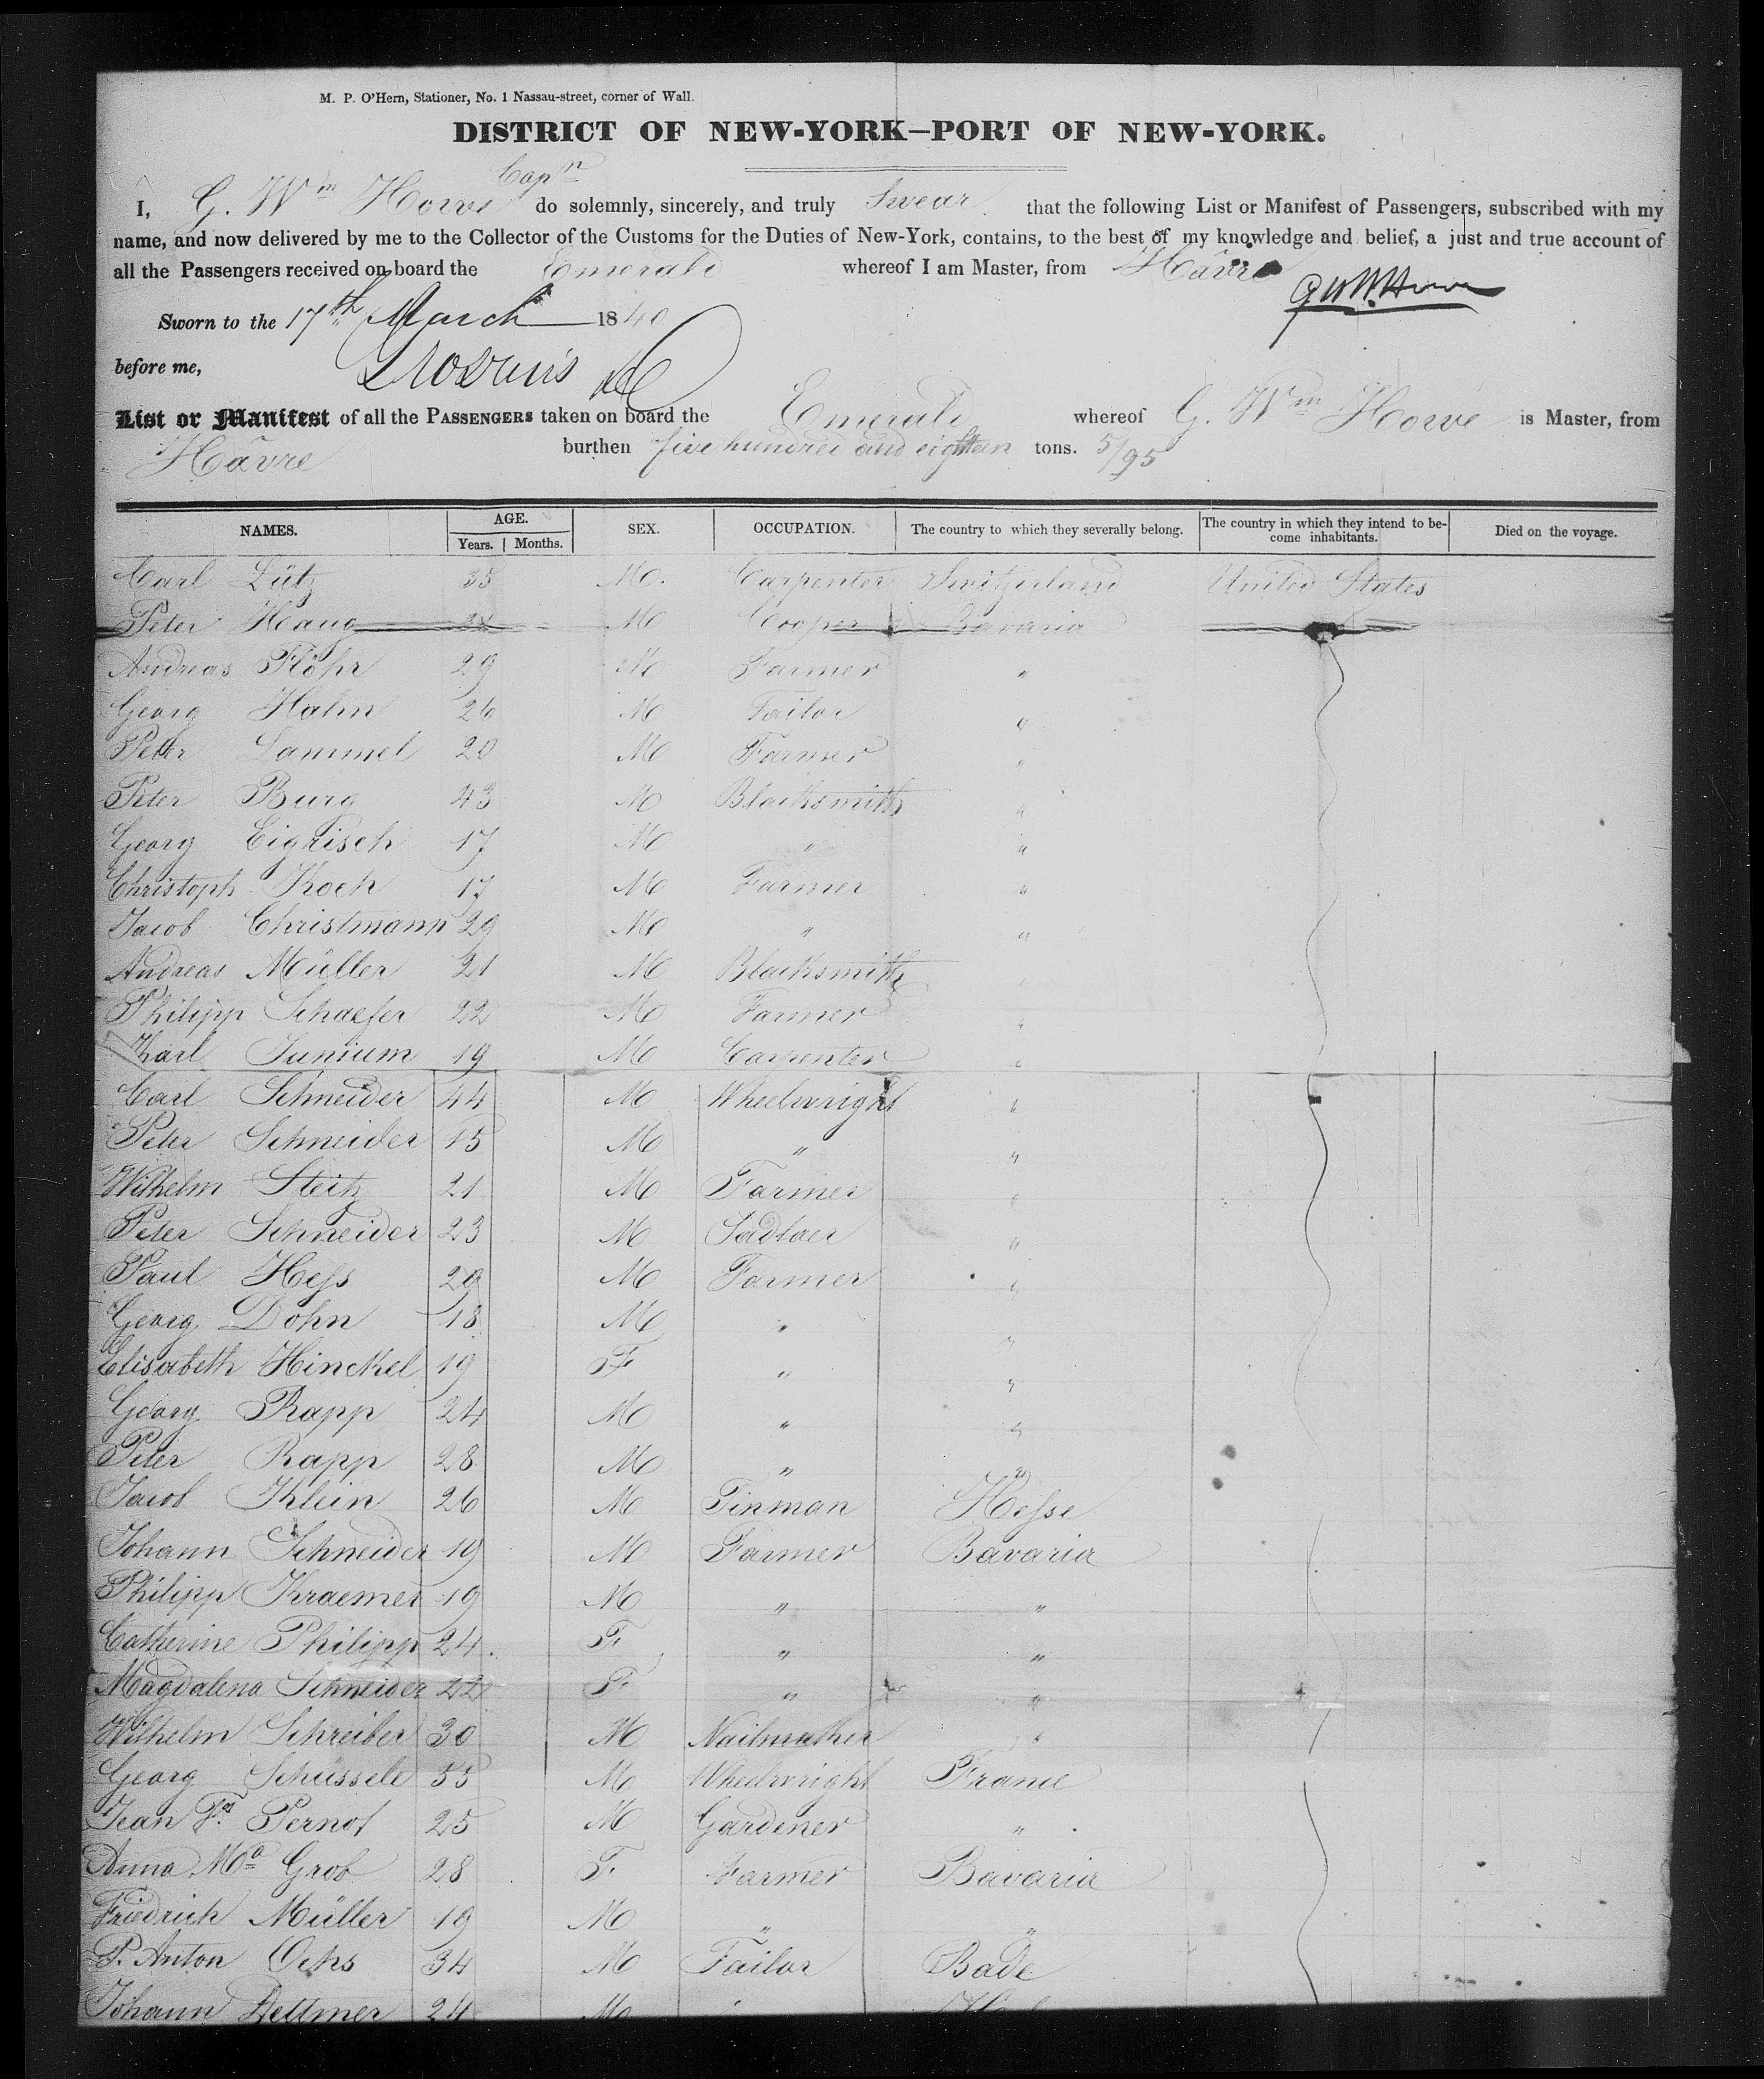 M. P. O'Hern, Stationer, No. 1 Nassau-street, corner of Wall.
DISTRICT OF NEW-YORK—PORT OF NEW-YORK.
Capn
I, G. Wm Howe do solemnly, sincerely, and truly Swear that the following List or Manifest of Passengers, subscribed with my
name, and now delivered by me to the Collector of the Customs for the Duties of New-York, contains, to the best of my knowledge and belief, a just and true account of
all the Passengers received on board the Emerald whereof I am Master, from Hâvre
G W Howe
Sworn to the 17th March 1840
before me,
List or Manifest of all the PASSENGERS taken on board the Emerald whereof G. Wm Howe is Master, from
Hâvre burthen five hundred and eighteen tons. 5/95
NAMES. AGE. SEX. OCCUPATION. The country to which they severally belong. The country in which they intend to be-
come inhabitants. Died on the voyage.
Years. Months.
Carl Lütz 35 M. Carpenter Switzerland United States
Peter Haug M Cooper Bavaria
Andreas Flöhr 29 M Farmer "
Georg Hahn 26 M Tailor "
Peter Lammel 20 M Farmer "
Peter Burg 43 M Blacksmith "
Georg Eigrisch 17 M " "
Christoph Koch 17 M Farmer "
Jacob Christmann 29 M " "
Andreas Müller 21 M Blacksmith "
Philipp Schaefer 22 M Farmer "
Karl Junium 19 M Carpenter "
Carl Schneider 44 M Wheelwright "
Peter Schneider 15 M " "
Wilhelm Steitz 21 M Farmer "
Peter Schneider 23 M Sadloer "
Paul Hess 29 M Farmer "
Georg Dohn 18 M " "
Elisabeth Hinckel 19 F " "
Georg Rapp 24 M " "
Peter Rapp 28 M " "
Jacob Klein 26 M Tinman Hesse
Johann Schneider 19 M Farmer Bavaria
Philipp Kraemer 19 M " "
Catherine Philipp 24. F. " "
Magdalena Schneider 22 F. " "
Wilhelm Schreiber 30 M Nailmaker "
Georg Schüssele 55 M Wheelwright France
Jean Fs Pernot 25 M Gardener "
Anna Ma Grob 28 F. Farmer Bavaria
Friedrich Müller 19 M " "
P. Anton Ochs 34 M Tailor Bade
Johann Dettmer 24 M